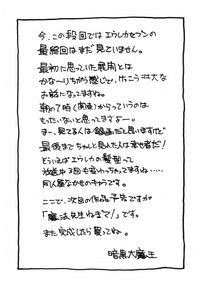 今、この段階ではエウレカセブンの
最終回はまだ見ていません。
最初に思っていた展開とは
かな〜りちがう感じで、けっこう壮大な
お話になってますね。
朝の7時(関東)からっていうのは
もったいないと思ってますよー。
ま、見てる人は録画だと思いますが
最後までちゃんと見れた人は幸せ者だ!
どうでもいいがエウレカの髪型って
放送中3回も変わっちゃってますね…
同人屋なかせのキャラです。
ここで、次回の作品予告ですが
「魔法先生ねぎま!」です。
また完成したら買ってね。
暗黒大魔王